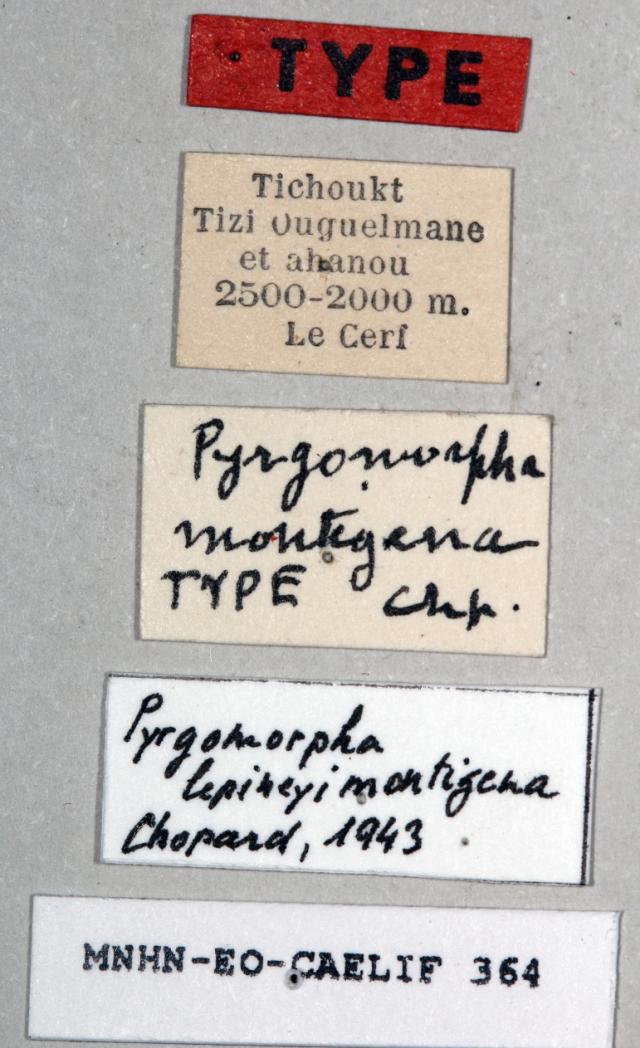 TYPE
Tichoukt
Tizi Ouguelmane
et ahanou
2500-2000 m.
Le Cerf
Pyrgomorpha
montigena
TYPE Chp.
Pyrgomorpha
lepineyi montigena
Chopard, 1943
MNHN-EO-CAELIF 364